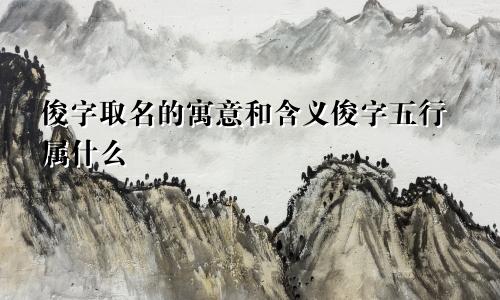 俊字取名的寓意和含义俊字五行
属什么